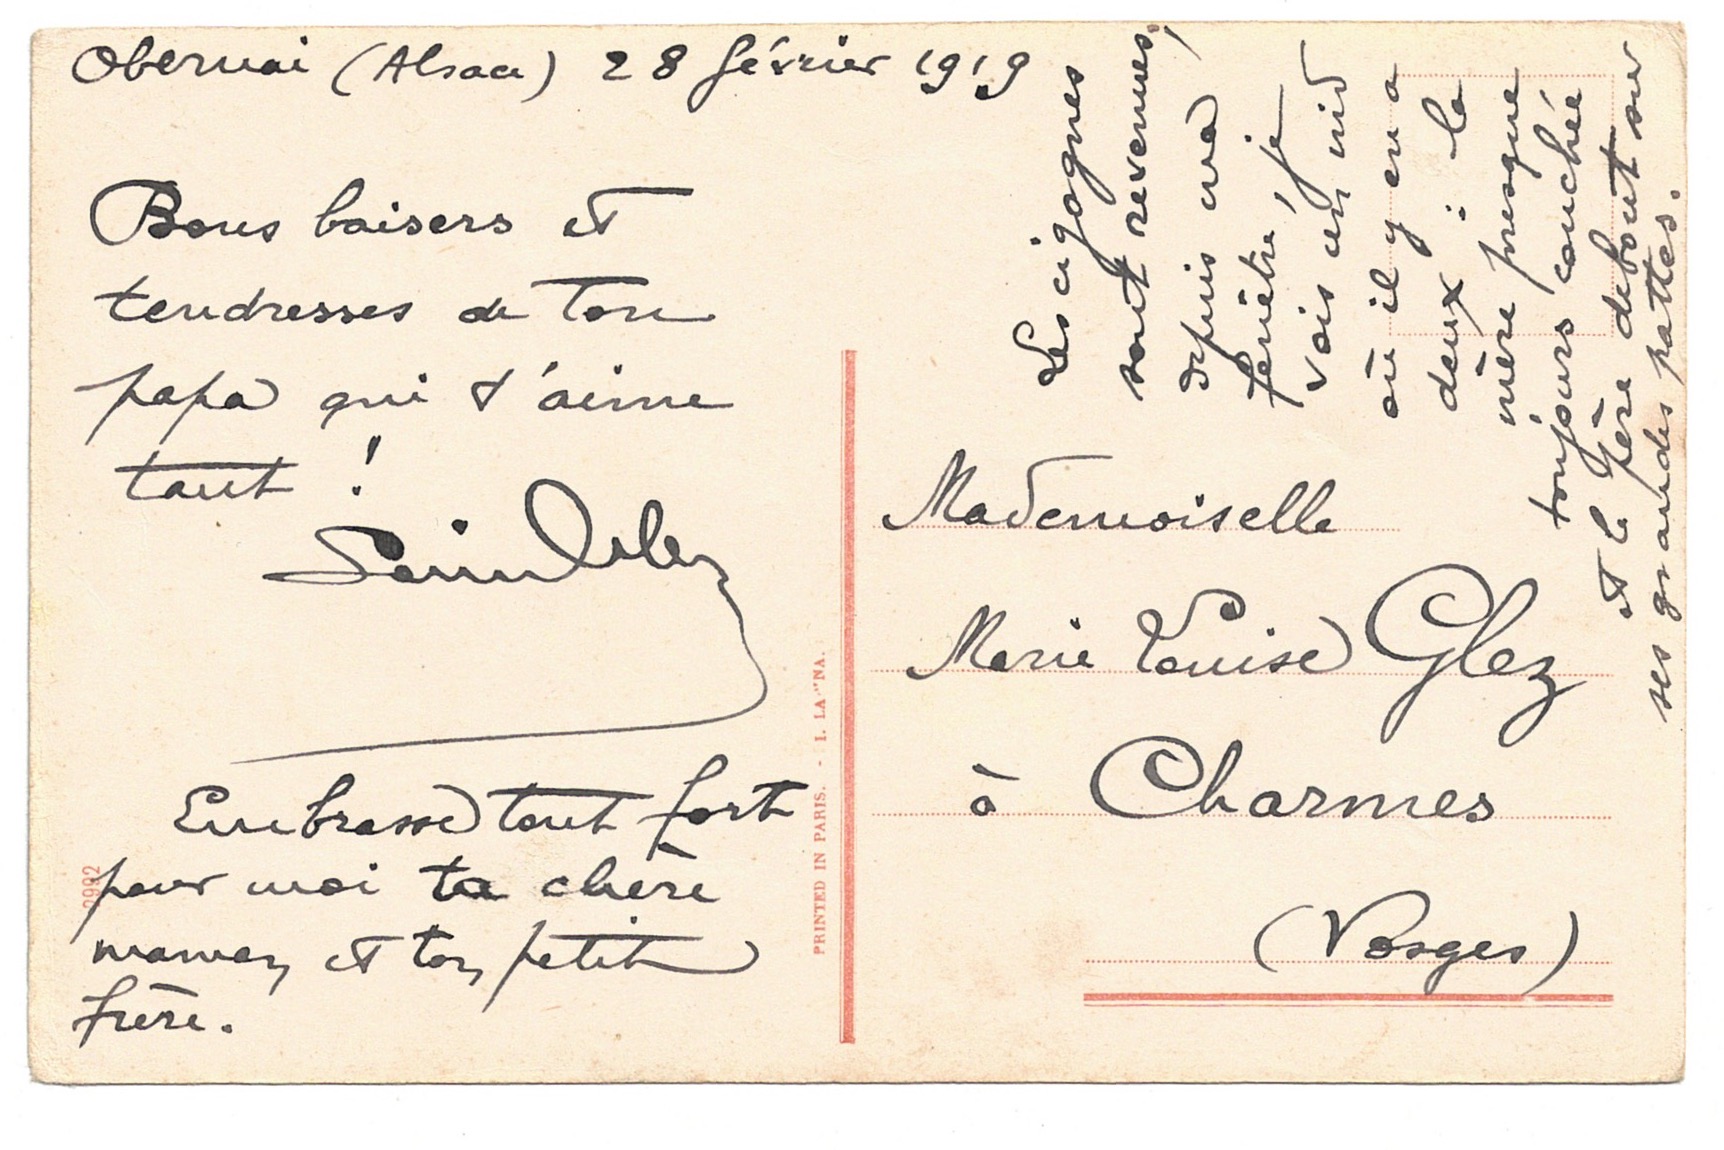 Obernai (Alsace) 28 février 1919
Bons baisers et
tendresses de ton
papa qui t'aime
tant !
Embrasse tout fort
pour moi ta chère
maman et ton petit
frère.
2992
PRINTED IN PARIS. - I. LA
Les cigognes
sont revenues,
depuis ma
fenêtre, je
vois un nid
où il y en a
deux : la
mère presque
toujours couchée
et le père debout sur
ses grandes pattes.
Mademoiselle
Marie Louise Glez
à Charmes
(Vosges)